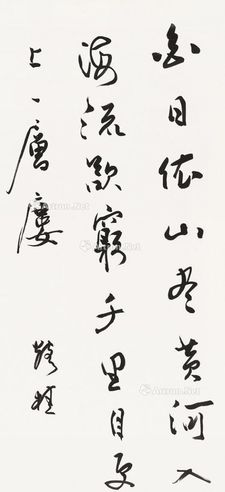 白日依山尽黄河入
海流欲窮千里目更
上一層樓
Artron.Net